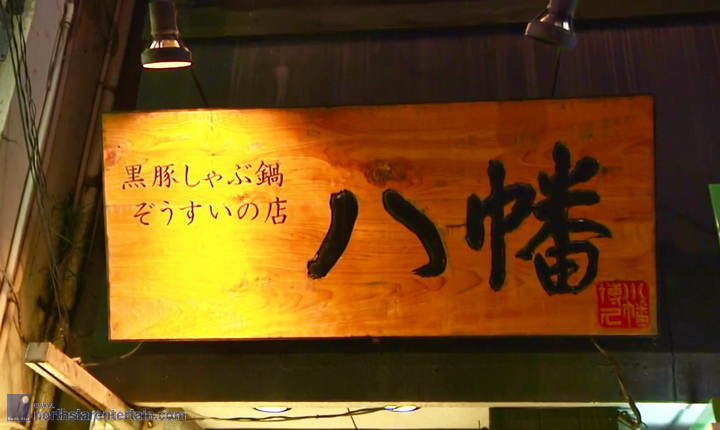 黒豚しゃぶ鍋
ぞうすいの店
八幡
northstarentertain.com